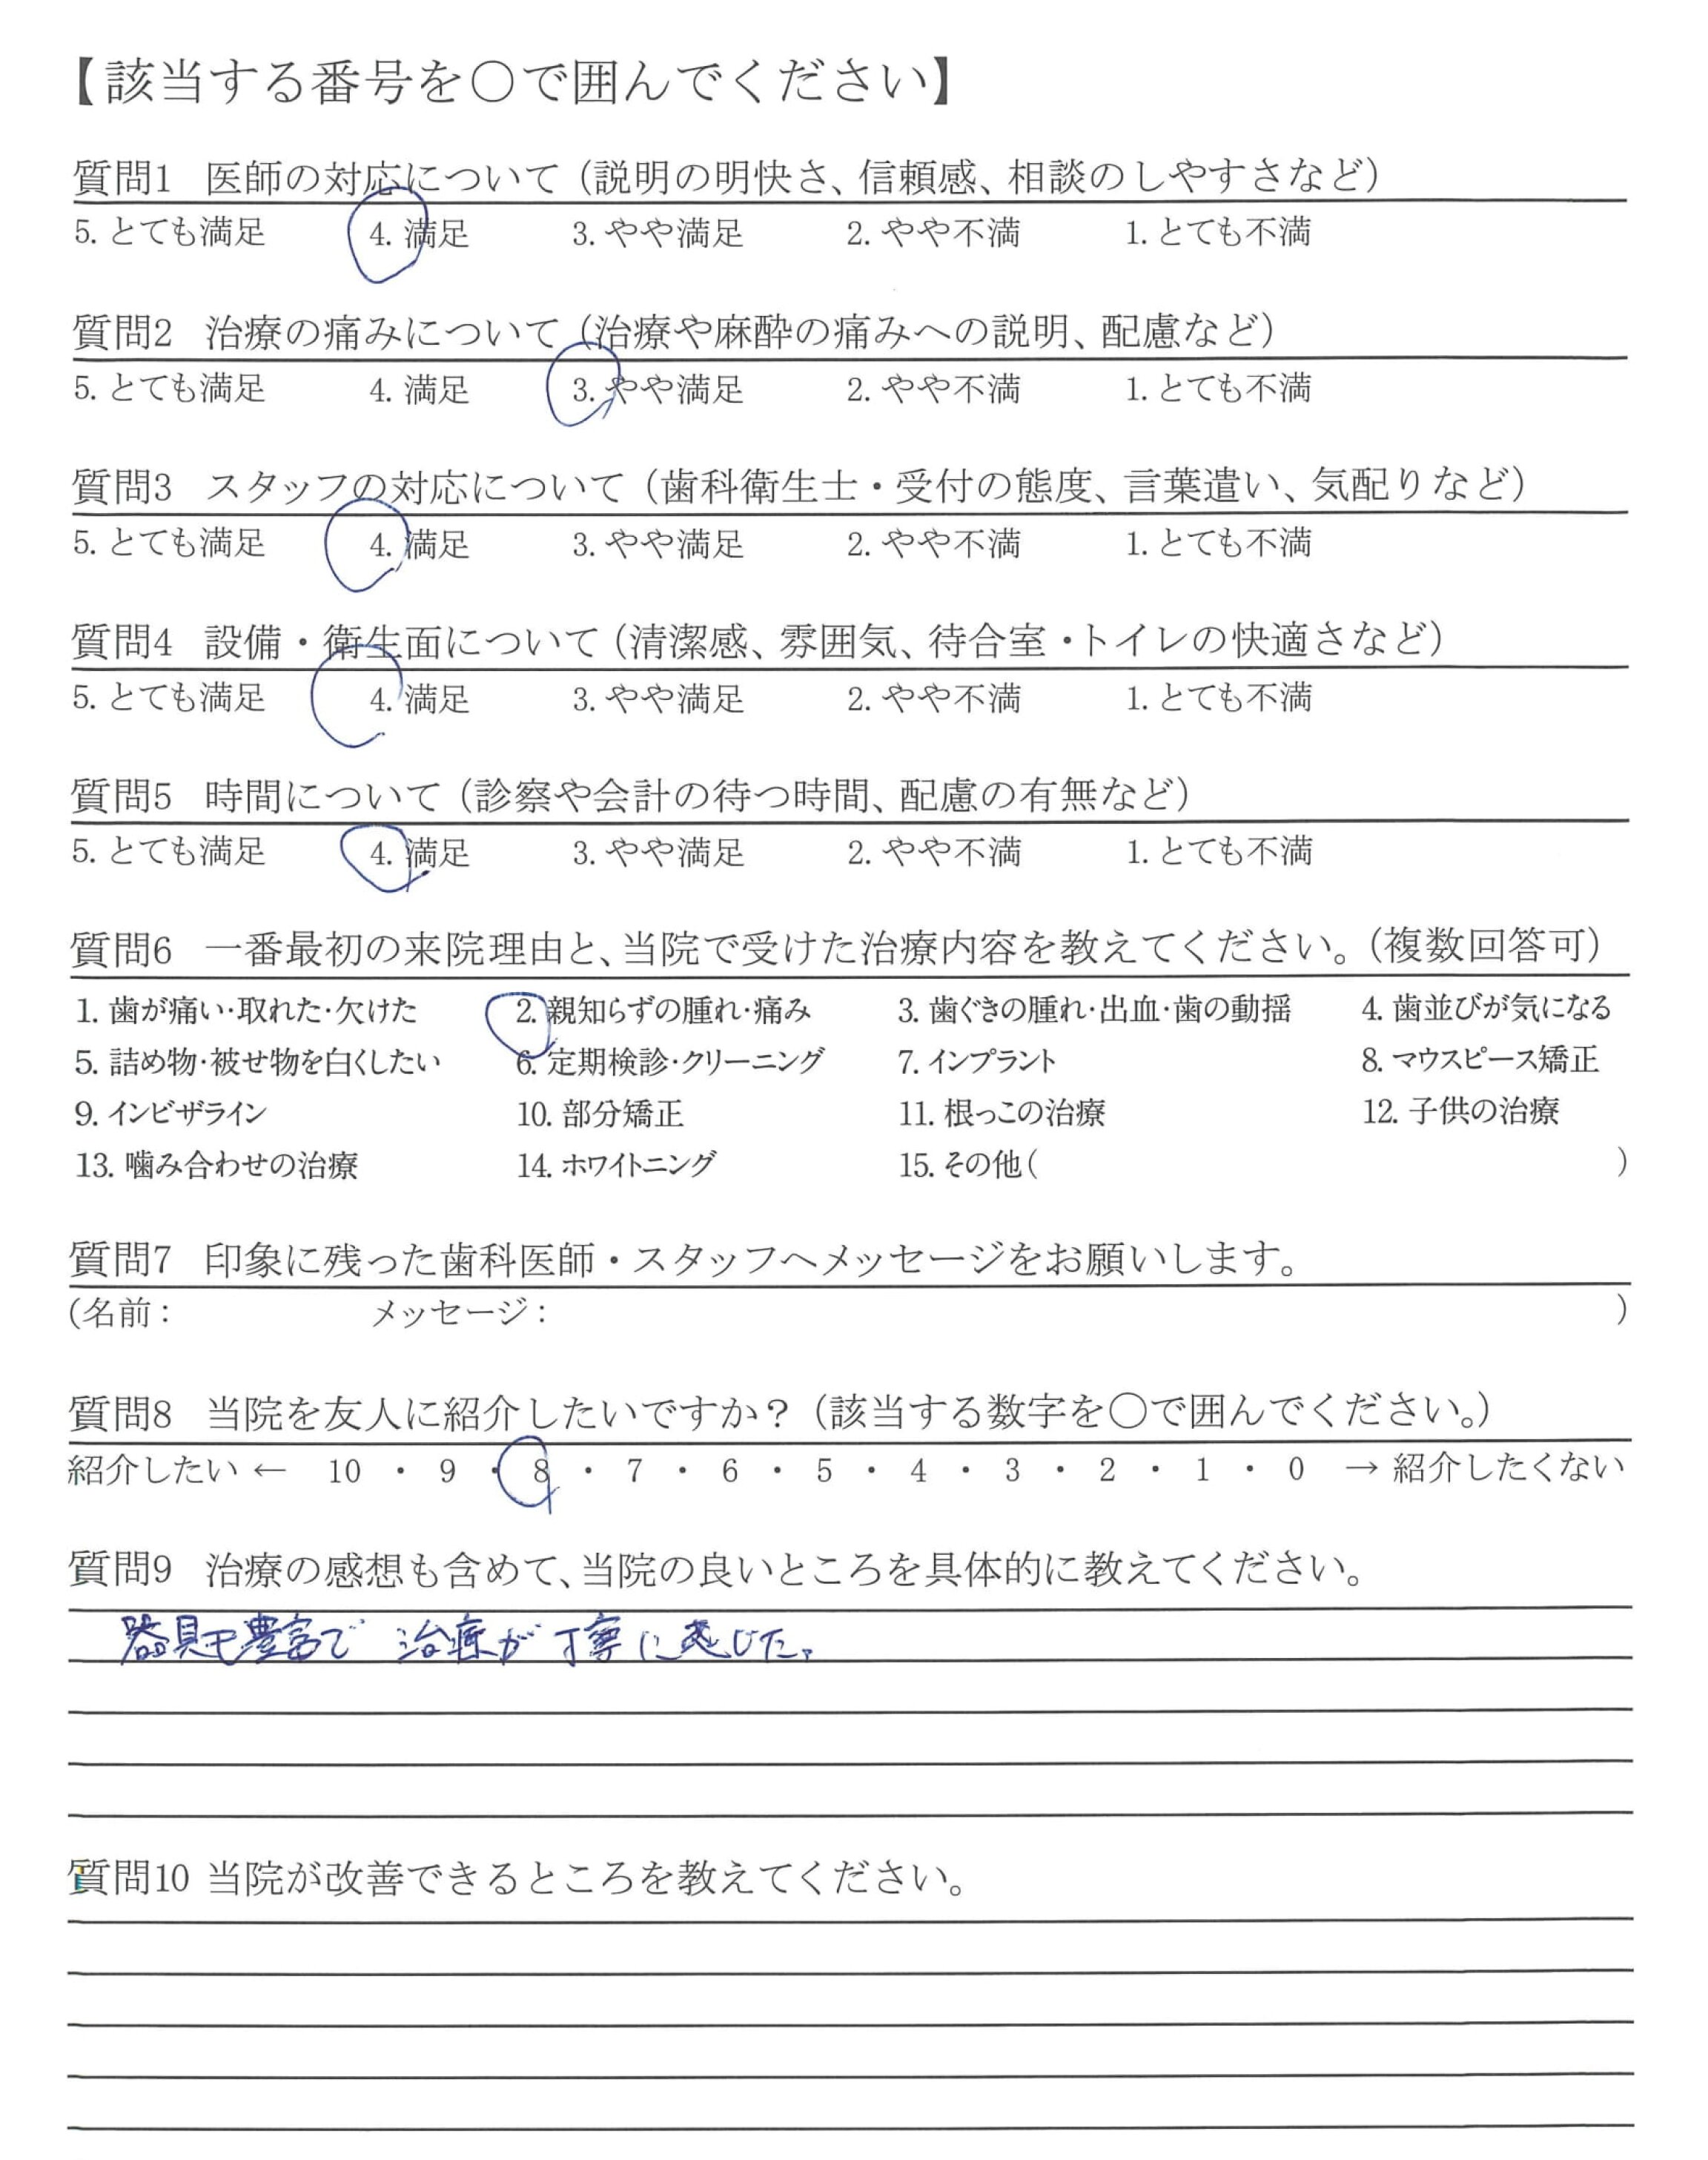 【該当する番号を○で囲んでください】
質問1 医師の対応について（説明の明快さ、信頼感、相談のしやすさなど）
5. とても満足 4. 満足 3. やや満足 2. やや不満 1. とても不満
質問2 治療の痛みについて（治療や麻酔の痛みへの説明、配慮など）
5. とても満足 4. 満足 3. やや満足 2. やや不満 1. とても不満
質問3 スタッフの対応について（歯科衛生士・受付の態度、言葉遣い、気配りなど）
5. とても満足 4. 満足 3. やや満足 2. やや不満 1. とても不満
質問4 設備・衛生面について（清潔感、雰囲気、待合室・トイレの快適さなど）
5. とても満足 4. 満足 3. やや満足 2. やや不満 1. とても不満
質問5 時間について（診察や会計の待つ時間、配慮の有無など）
5. とても満足 4. 満足 3. やや満足 2. やや不満 1. とても不満
質問6 一番最初の来院理由と、当院で受けた治療内容を教えてください。（複数回答可）
1. 歯が痛い・取れた・欠けた 2. 親知らずの腫れ・痛み 3. 歯ぐきの腫れ・出血・歯の動揺 4. 歯並びが気になる
5. 詰め物・被せ物を白くしたい 6. 定期検診・クリーニング 7. インプラント 8. マウスピース矯正
9. インビザライン 10. 部分矯正 11. 根っこの治療 12. 子供の治療
13. 噛み合わせの治療 14. ホワイトニング 15. その他( )
質問7 印象に残った歯科医師・スタッフへメッセージをお願いします。
(名前： メッセージ： )
質問8 当院を友人に紹介したいですか？（該当する数字を○で囲んでください。）
紹介したい ← 10 ・ 9 ・ 8 ・ 7 ・ 6 ・ 5 ・ 4 ・ 3 ・ 2 ・ 1 ・ 0 → 紹介したくない
質問9 治療の感想も含めて、当院の良いところを具体的に教えてください。
器具も豊富で 治療が丁寧に感じた。
質問10 当院が改善できるところを教えてください。